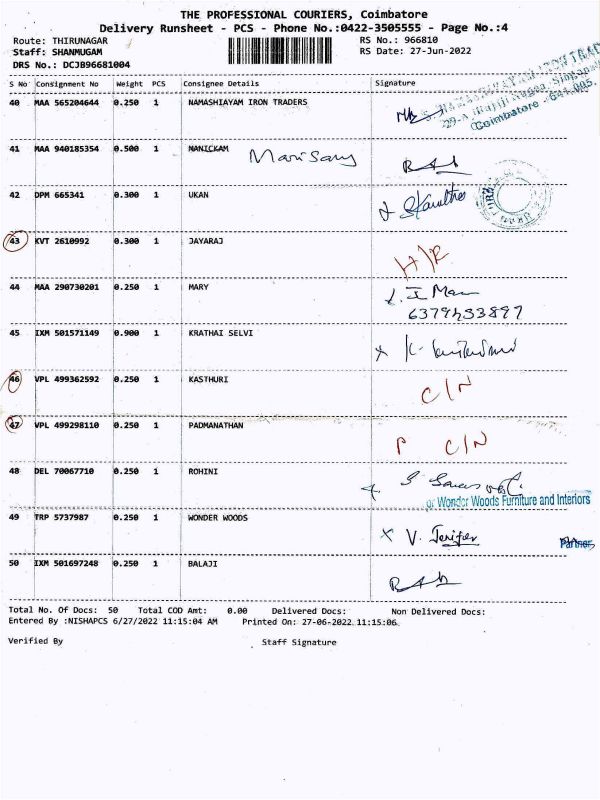 THE PROFESSIONAL COURIERS, Coimbatore
Delivery Runsheet - PCS - Phone No.:0422-3505555 - Page No.:4
Route: THIRUNAGAR RS No.: 966810
Staff: SHANMUGAM RS Date: 27-Jun-2022
DRS No.: DCJB96681004
S No Consignment No Weight PCS Consignee Details Signature
40 MAA 565204644 0.250 1 NAMASHIAYAM IRON TRADERS
Coimbatore - 641 005.
41 MAA 940185354 0.500 1 MANICKAM
42 DPM 665341 0.300 1 UKAN
43 KVT 2610992 0.300 1 JAYARAJ
44 MAA 290730201 0.250 1 MARY
45 IXM 501571149 0.900 1 KRATHAI SELVI
46 VPL 499362592 0.250 1 KASTHURI C/N
47 VPL 499298110 0.250 1 PADMANATHAN P C/N
48 DEL 70067710 0.250 1 ROHINI
or Wonder Woods Furniture and Interiors
49 TRP 5737987 0.250 1 WONDER WOODS x V. Jenifer
Partner
50 IXM 501697248 0.250 1 BALAJI
Total No. Of Docs: 50 Total COD Amt: 0.00 Delivered Docs: Non Delivered Docs:
Entered By :NISHAPCS 6/27/2022 11:15:04 AM Printed On: 27-06-2022 11:15:06
Verified By Staff Signature